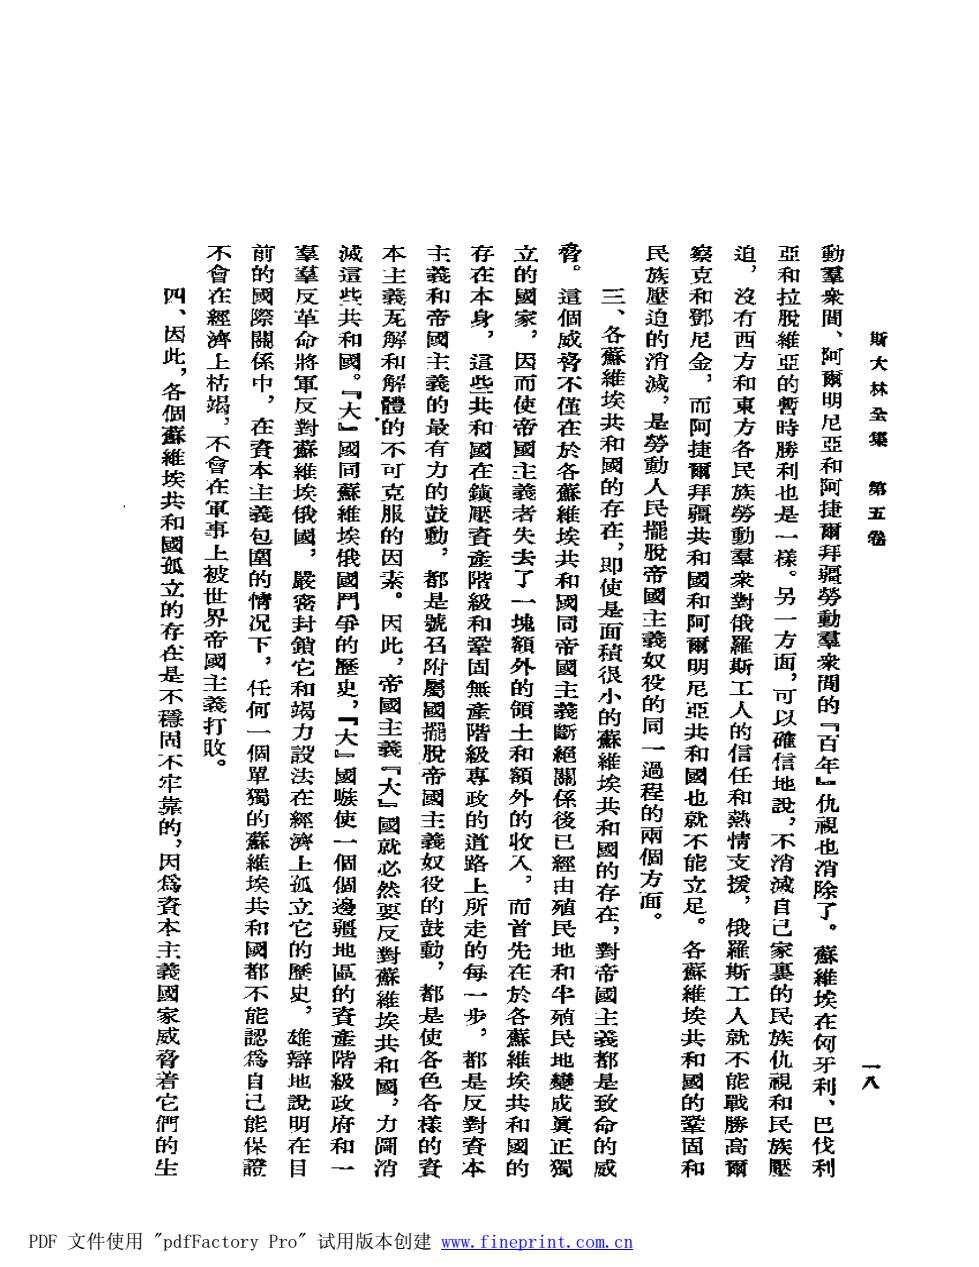 斯大林全集　第五卷
一八
動羣衆間、阿爾明尼亞和阿捷爾拜疆勞動羣衆間的『百年』仇視也消除了。蘇維埃在匈牙利、巴伐利
亞和拉脫維亞的暫時勝利也是一樣。另一方面，可以確信地說，不消滅自己家裏的民族仇視和民族壓
迫，沒有西方和東方各民族勞動羣衆對俄羅斯工人的信任和熱情支援，俄羅斯工人就不能戰勝高爾
察克和鄧尼金，而阿捷爾拜疆共和國和阿爾明尼亞共和國也就不能立足。各蘇維埃共和國的鞏固和
民族壓迫的消滅，是勞動人民擺脫帝國主義奴役的同一過程的兩個方面。
三、各蘇維埃共和國的存在，即使是面積很小的蘇維埃共和國的存在，對帝國主義都是致命的威
脅。這個威脅不僅在於各蘇維埃共和國同帝國主義斷絕關係後已經由殖民地和半殖民地變成眞正獨
立的國家，因而使帝國主義者失去了一塊額外的領土和額外的收入，而首先在於各蘇維埃共和國的
存在本身，這些共和國在鎭壓資產階級和鞏固無產階級專政的道路上所走的每一步，都是反對資本
主義和帝國主義的最有力的鼓動，都是號召附屬國擺脫帝國主義奴役的鼓動，都是使各色各樣的資
本主義瓦解和解體的不可克服的因素。因此，帝國主義『大』國就必然要反對蘇維埃共和國，力圖消
滅這些共和國。『大』國同蘇維埃俄國鬥爭的歷史，『大』國嗾使一個個邊疆地區的資產階級政府和一
羣羣反革命將軍反對蘇維埃俄國，嚴密封鎖它和竭力設法在經濟上孤立它的歷史，雄辯地說明在目
前的國際關係中，在資本主義包圍的情况下，任何一個單獨的蘇維埃共和國都不能認爲自己能保證
不會在經濟上枯竭，不會在軍事上被世界帝國主義打敗。
四、因此，各個蘇維埃共和國孤立的存在是不穩固不牢靠的，因爲資本主義國家威脅着它們的生
PDF 文件使用 "pdfFactory Pro" 试用版本创建 www.fineprint.com.cn